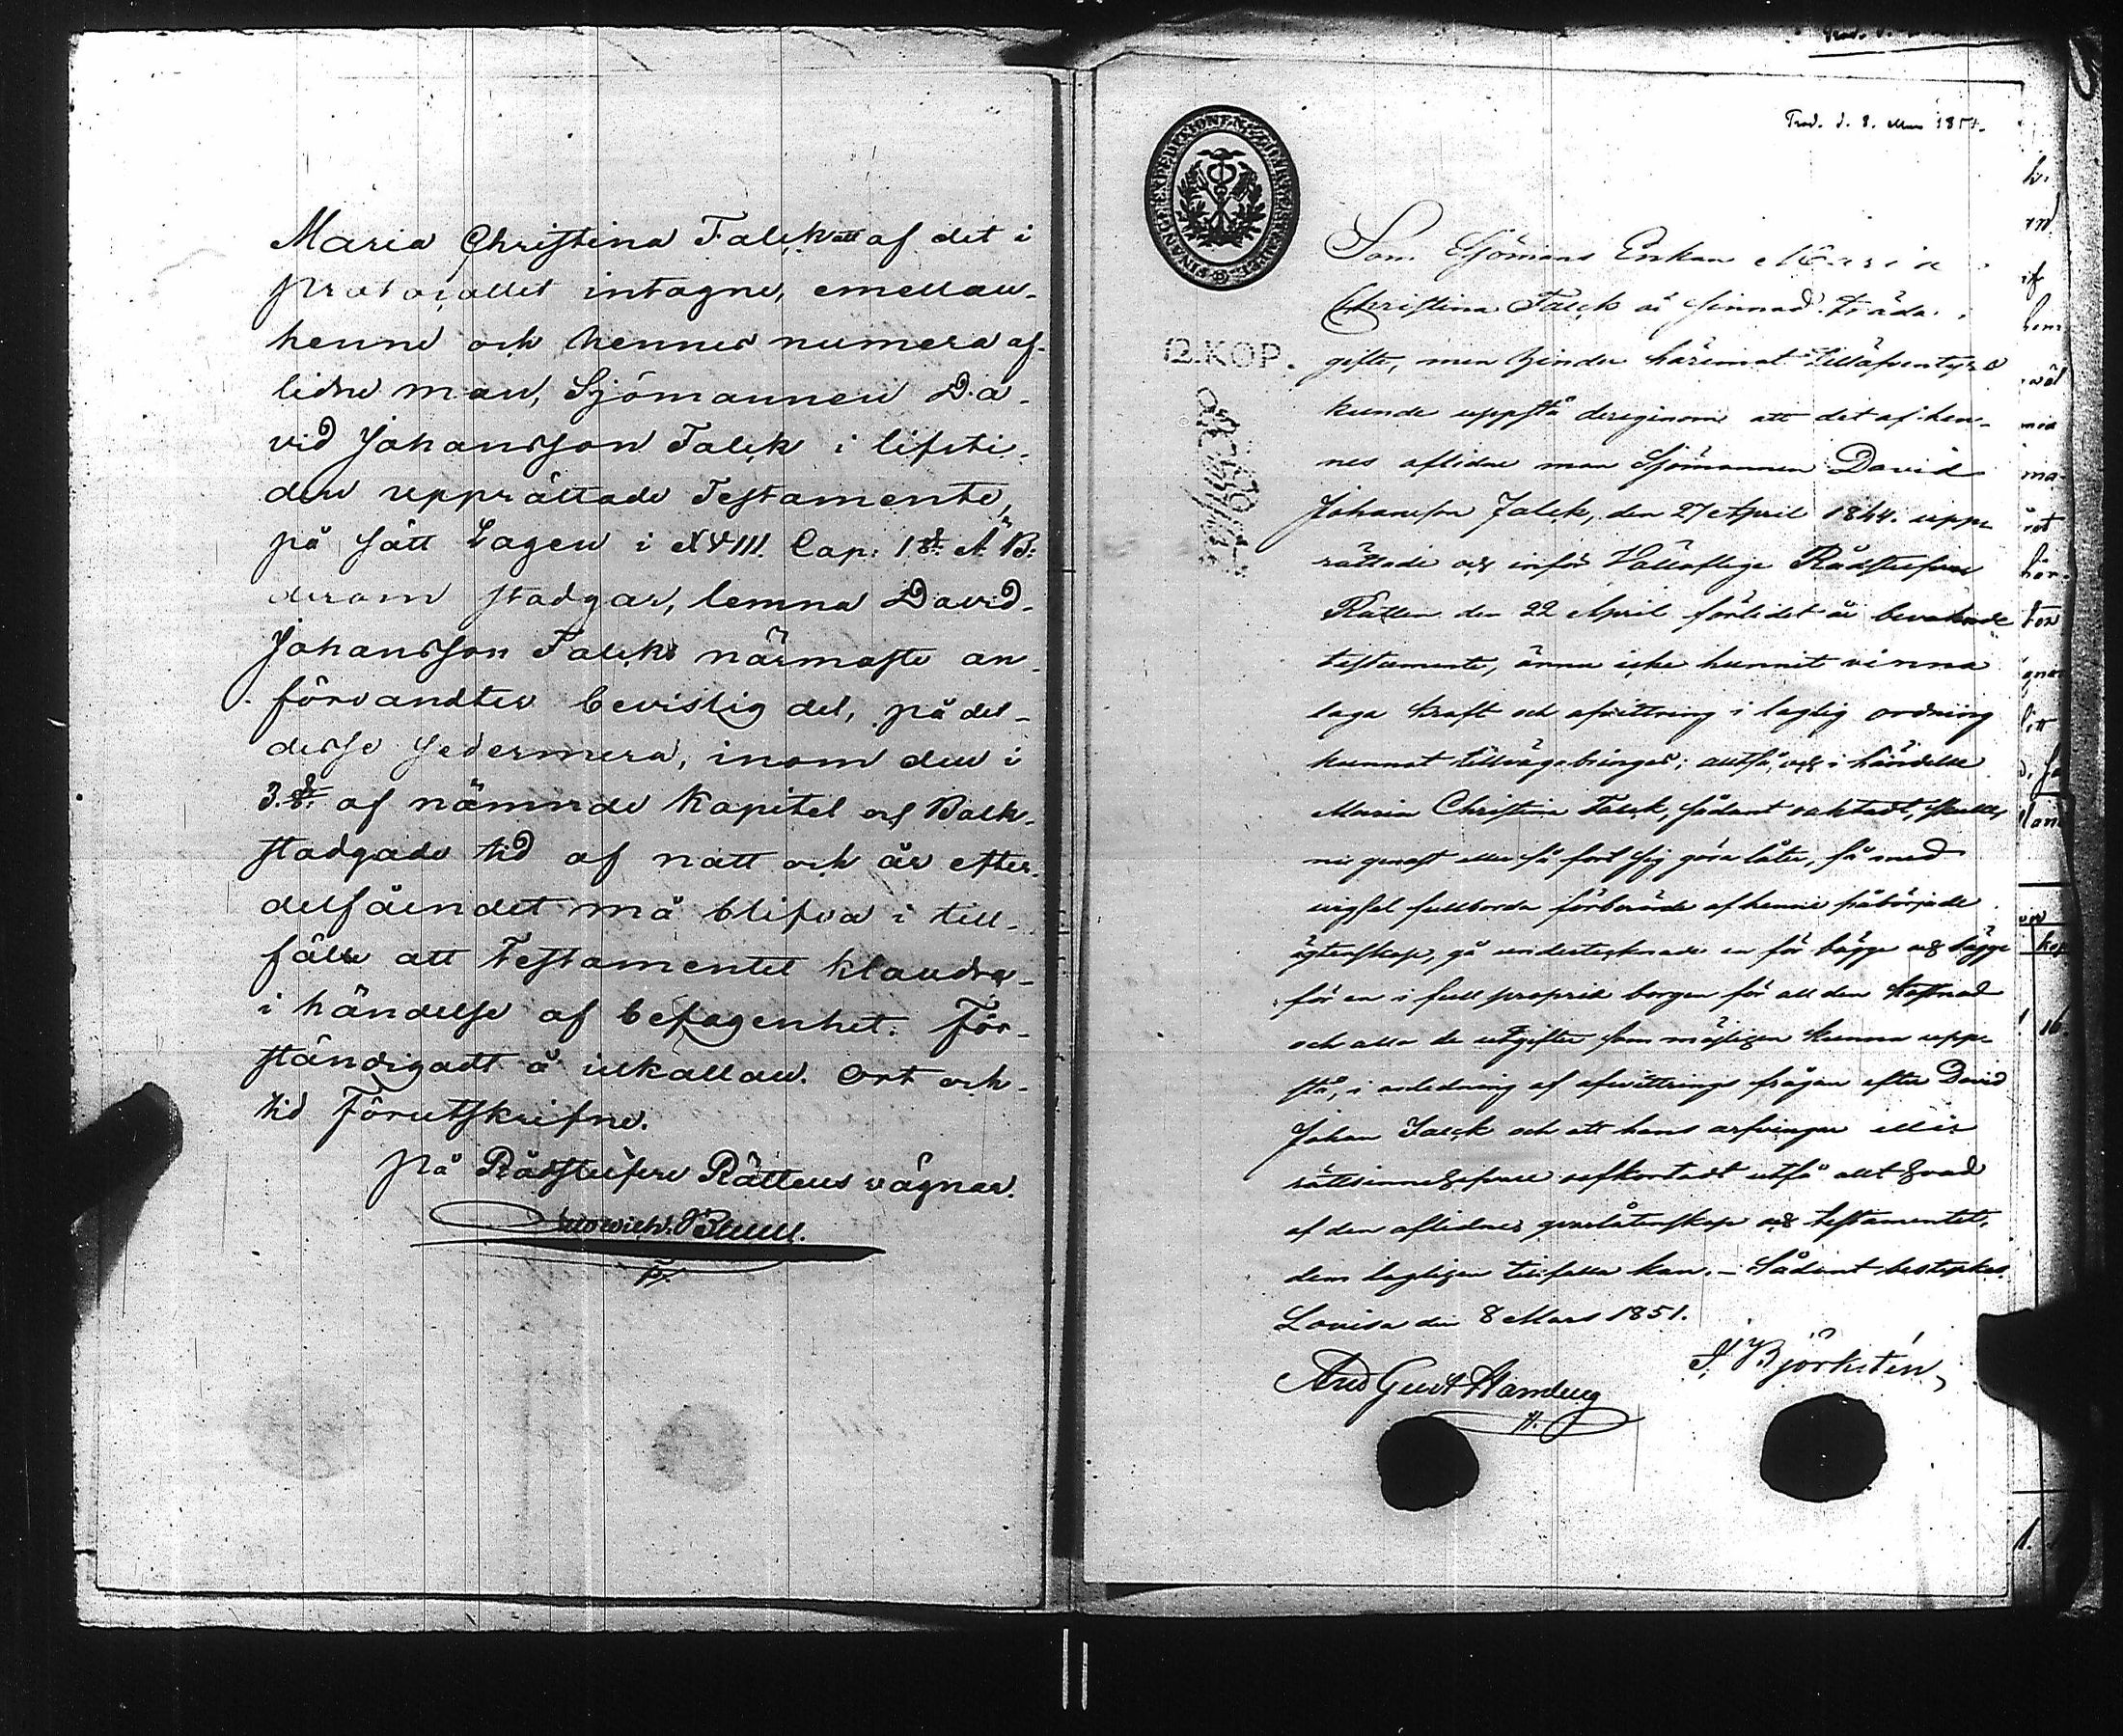 Maria Christina Falck att af det i
protocollet intagne, emellan
henne och hennes numera af-
lidne man, Sjömannen Da-
vid Johansson Falck i lifsti-
den upprättade Testamente,
på sätt Lagen i XVIII. Cap: 1 §. Ä. B:
derom stadgar, lemna David
Johansson Falcks närmaste an-
förvandter bevislig del, på det
desse sedermera, inom den i
3. §. af nämnde Kapitel og Balk
stadgade tid af natt och år efter
delfåendet må blifva i till-
fälle att Testamentet klandra
i händelse af befogenhet. För-
ständigadt å uekallan. Ort och
tid Förutskrifne.
På Rådstufvu Rättens vägnar.
Trad. d. 8. Mars 1851.
FINANCE EXPEDITIONENS
12. KOP.
Som Sjömans Enkan Maria
Christina Falck är sinnad träda i
gifte, men hinder häremot tilläfventyrs
kunde uppstå derigenom att det af hen-
nes aflidne man Sjömannen David
Johansson Falck, den 27 April 1844 upp-
rättade och inför Vällofliga Rådstufvu
Rätten den 22 April förledet år bevakade
testamente, ännu icke hunnit vinna
laga kraft och afvittring i laglig ordning
kunnat tillvägabringas; alltså, och i händelse
Maria Christina Falck, sådant oaktadt, skulle,
nu genast eller så fort sig göra låter, få med
vigsel fullborda förberörde af henne påbörjade
ägtenskap, gå undertecknade en för bägge och bägge
för en i full proprie borgen för all den kostnad
och alla de utgifter som möjligen kunna upp-
stå, i anledning af afvittrings frågan efter David
Johan Falck och att hans arfvingar eller
rättsinnehafvare oafkortadt utfå allt hvad
af den aflidnes qvarlåtenskap och testamentet,
dem lagligen tillfalla kan. – Sådant bestyrkes.
Lovisa den 8 Mars 1851.
And Gust Hamberg
J. Björkstén